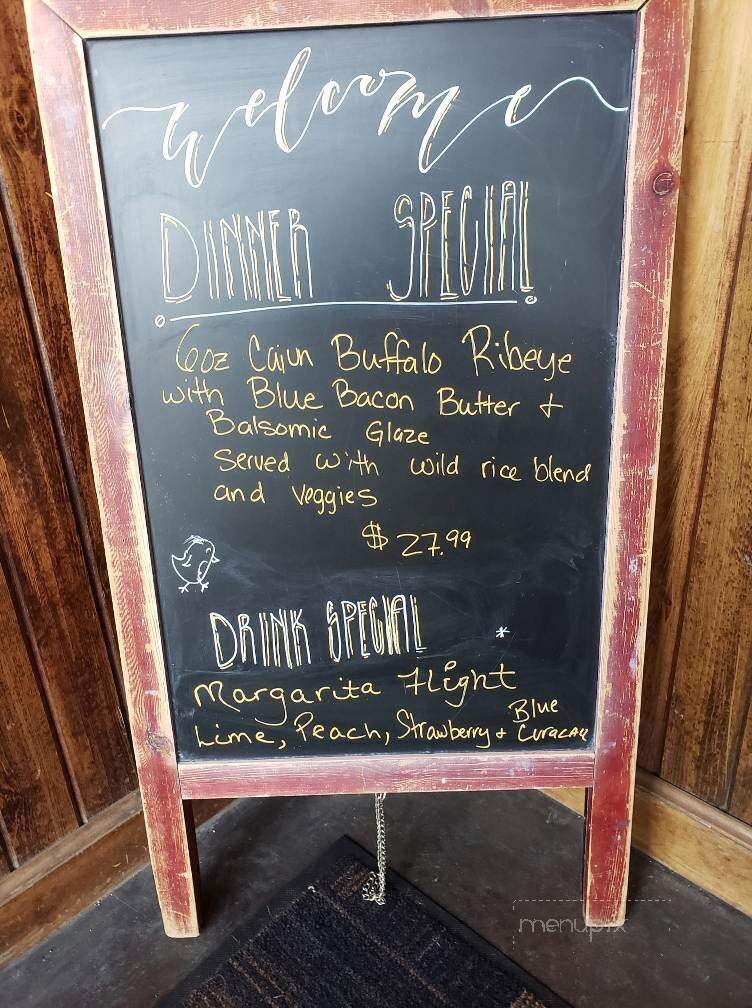 welcome
DINNER SPECIAL
6oz Cajun Buffalo Ribeye
with Blue Bacon Butter +
Balsomic Glaze
Served with wild rice blend
and veggies
$27.99
DRINK SPECIAL *
Margarita Flight
Lime, Peach, Strawberry + Blue Curacau
menupix